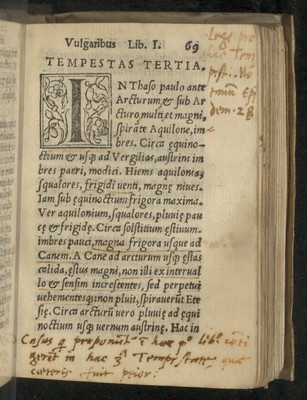 Vulgaribus Lib. I. 69
TEMPESTAS TERTIA.
IN Thaso paulo ante
Arcturum, & sub Ar
cturo, multi, et magni,
spirãte Aquilone, im
bres. Circa ęquino-
ctium & usq; ad Vergilias, austrini im
bres pauci, modici. Hiems aquilonia,
squalores, frigidi uenti, magnę niues.
Iam sub ęquinoctium frigora maxima.
Ver aquilonium, squalores, pluuię pau
cę & frigidę. Circa solstitium ęstiuum.
imbres pauci, magna frigora usque ad
Canem. A Cane ad arcturum usq; ęstas
calida, ęstus magni, non illi ex interual
lo & sensim increscentes, sed perpetui
uehementesq; non pluit, spirauerũt Ete
się. Circa arcturũ uero pluuię ad ęqui
noctium usq; uernum austrinę. Hac in
Casus q̃ proponũt ĩ hoc
in hac Tempestate, quã
cæteris fuit prior: